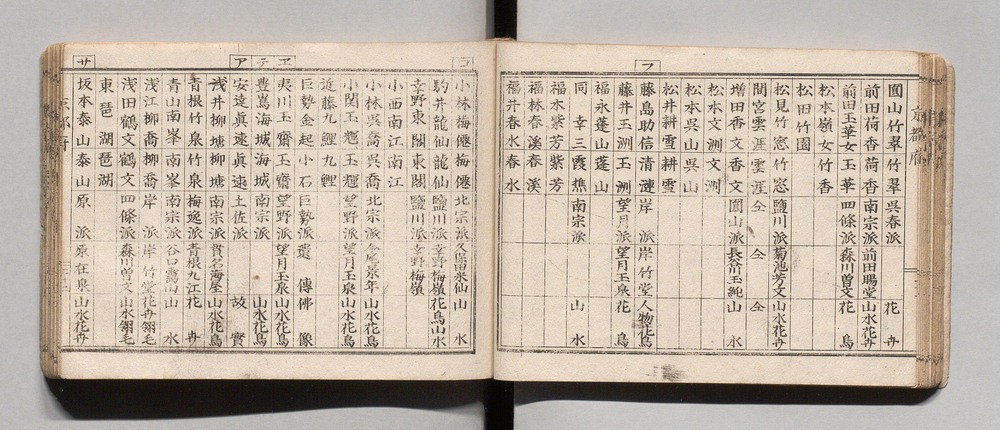 京都府
圓山竹翠 竹翠 呉春派 花卉
前田荷香 荷香 南宗派 前田暢堂 山水花卉
前田玉華女 玉華 四條派 森川曽文 花鳥
松本嶺女 竹香
松田竹園
松見竹窓 竹窓 鹽川派 菊池芳文 山水花卉
間宮雲涯 雲涯 仝 仝 仝
増田香文 香文 圓山派 長谷川玉純 山水
松本文洲 文洲
松本呉山 呉山
松井耕雪 耕雪
フ
藤島助信 清漣 岸派 岸竹堂 人物花鳥
藤井玉洲 玉洲 望月派 望月玉泉 花鳥
福永蓬山 蓬山
同幸三 霞樵 南宗派 山水
福水紫芳 紫芳
福林春溪 春溪
福井春水 春水
コ
小林梅僊 梅僊 北宗派 久保田米仙 山水
駒井龍仙 龍仙 鹽川派 幸野梅嶺 花鳥山水
幸野東閣 東閣 鹽川派 幸野梅嶺
小西南江 南江
小林呉喬 呉喬 北宗派 今尾景年 山水花鳥
小関玉𨗉 玉𨗉 望野派 望月玉泉 山水花鳥
近藤九鯉 九鯉
巨勢金起 小石 巨勢派 遺傳 佛像
ヱ
夷川玉齋 玉齋 望野派 望月玉泉 山水花鳥
テ
豊嶌海城 海城 南宗派 山水花鳥
ア
安達眞速 眞速 土佐派 故實
浅井柳塘 柳塘 南宗派 貫名海屋 山水花鳥
青根竹泉 竹泉 梅逸派 青根九江 花卉
青山南峯 南峯 南宗派 谷口靄山 山水
浅江柳喬 柳喬 岸派 岸竹堂 花卉翎毛
浅田鶴文 鶴文 四條派 森川曽文 山水翎毛
東琶湖 琶湖
サ
坂本泰山 泰山 原派 原在泉 山水花卉
京都府